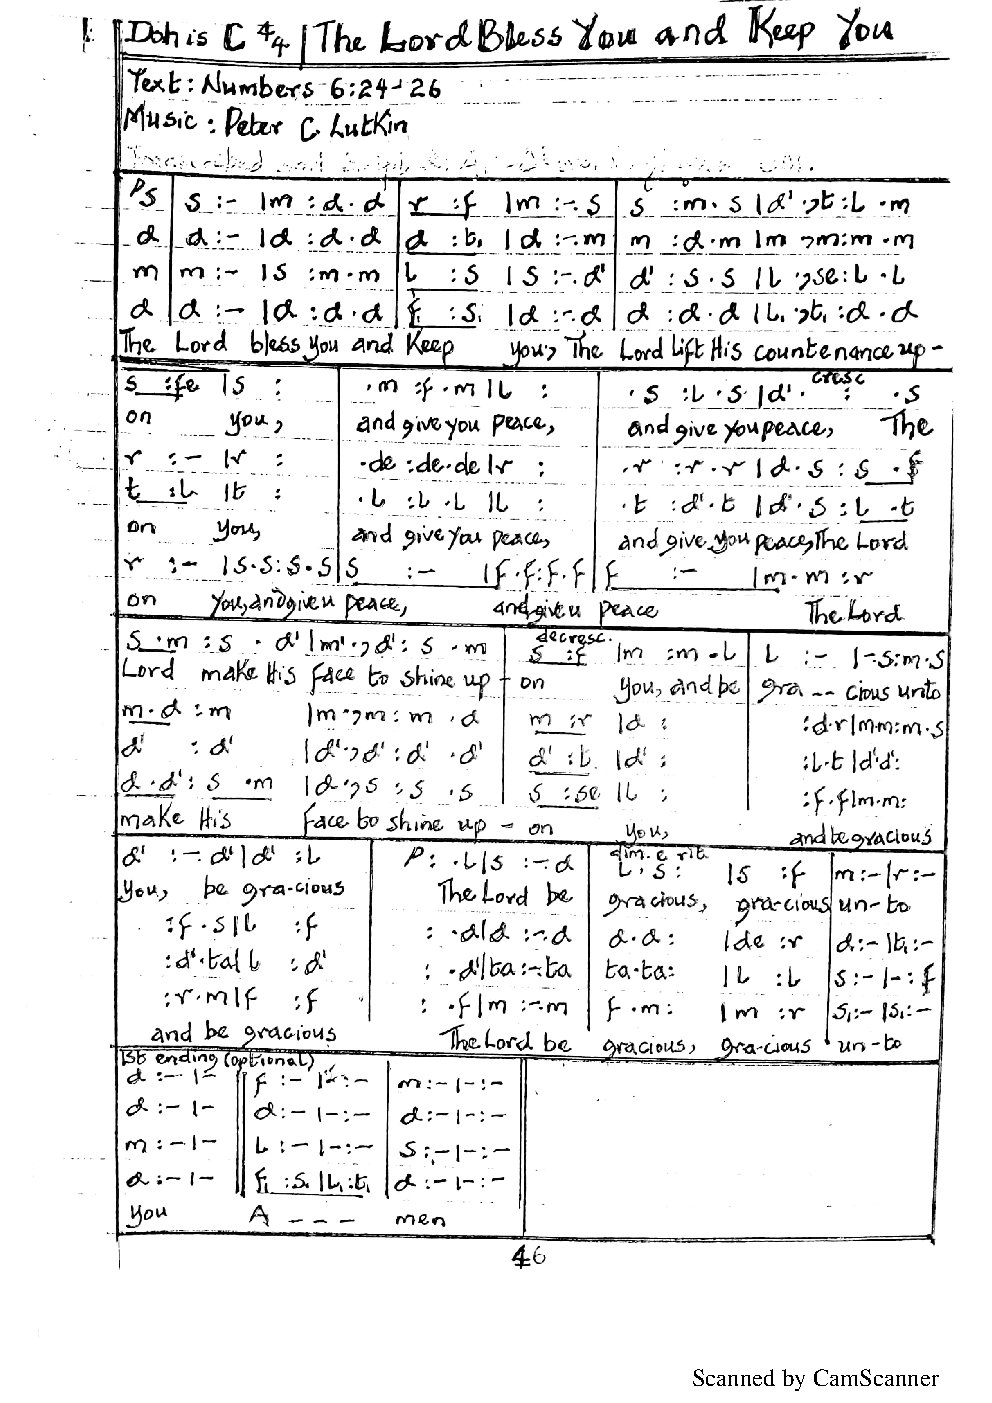 1. Doh is C 4/4 | The Lord Bless You and Keep You
Text: Numbers 6:24-26
Music: Peter C Lutkin
PS | s :- |m :d.d | r :f |m :-.s | s :m.s |d' .,t:l .m
d | d :- |d :d.d | d :t, |d :-.m | m :d.m |m ,m:m .m
m | m :- |s :m.m | l :s |s :-.d' | d' :s.s |l .,se:l .l
d | d :- |d :d.d | f, :s, |d :-.d | d :d.d |l, .,t, :d .d
The Lord bless you and Keep you, The Lord Lift His countenance up-
s :fe |s : | .m :f.m |l : | .s :l .s |d' . cresc : .s
on you, and give you peace, and give you peace, The
r :- |r : | .de :de.de |r : | .r :r.r |d.s :s .f
t :l |t : | .l :l .l |l : | .t :d'.t |d'.s :l .t
on you, and give you peace, and give you peace, The Lord
r :- |s.s:s.s | s :- |f.f:f.f | f :- |m.m :r
on you, and give u peace, and give u peace The Lord
s.m :s .d' |m'.,d':s .m | decresc. s :f |m :m.l | l :- |-.s:m.s
Lord make His face to shine up - on you, and be gra -- cious unto
m.d :m |m.,m:m .d | m :r |d : | :d.r|m.m:m.s
d' :d' |d'.,d':d' .d' | d' :t |d' : | :l.t |d'.d':
d.d':s .m |d .,s :s .s | s :se |l : | :f.f|m.m:
make His face to shine up - on you, and be gracious
d' :-.d'|d' :l | P: .l|s :-.d | dim. e rit. l.s: |s :f | m:-|r:-
you, be gra-cious The Lord be gracious, gra-cious un-to
:f.s|l :f | : .d|d :-.d | d.d: |de :r | d:-|t,:-
:d'.ta|l :d' | : .d'|ta:-.ta | ta.ta: |l :l | s:-|-:f
:r.m|f :f | : .f|m :-.m | f.m: |m :r | s,:-|s,:-
and be gracious The Lord be gracious, gra-cious un-to
1st ending (optional)
d :-|- | f :-|-:- | m:-|-:-
d :-|- | d:-|-:- | d:-|-:-
m :-|- | l :-|-:- | s:-|-:-
d :-|- | f, :s, |l,:t, | d:-|-:-
you A --- men
46
Scanned by CamScanner